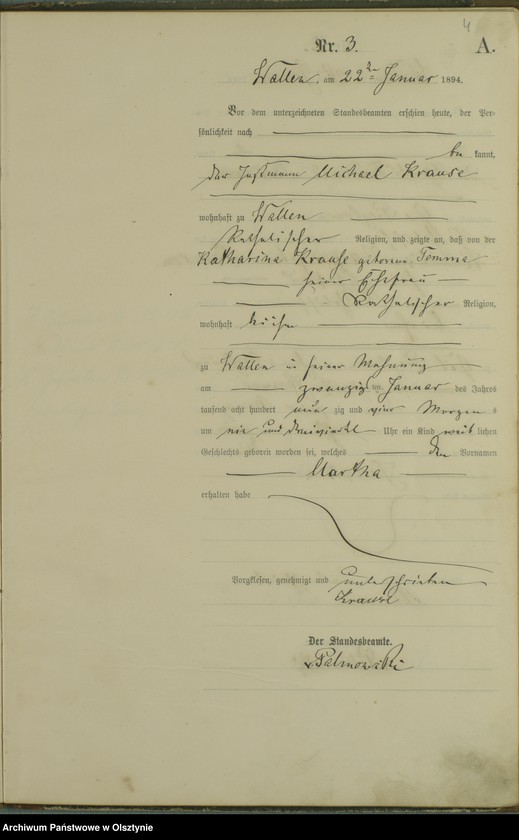 4
Nr. 3. A.
Wallen. am 22ten Januar 1894.
Vor dem unterzeichneten Standesbeamten erschien heute, der Per-
sönlichkeit nach
be kannt,
der Instmann Michael Krause
wohnhaft zu Wallen
Katholischer Religion, und zeigte an, daß von der
Katharina Krause geborene
seiner Ehefrau
Katholischer Religion,
wohnhaft bei ihm
zu Wallen in seiner Wohnung
am zwanzigsten Januar des Jahres
tausend acht hundert neun zig und vier Morgen s
um ein und dreiviertel Uhr ein Kind weib lichen
Geschlechts geboren worden sei, welches den Vornamen
Martha
erhalten habe
Vorgelesen, genehmigt und unterschrieben
Krause
Der Standesbeamte.
Palmowski
Archiwum Państwowe w Olsztynie